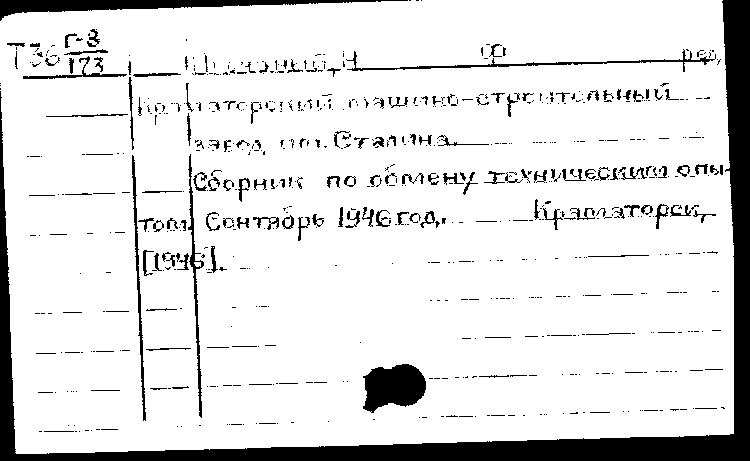 Т36 Г-8/173
Н Ф ред.
Краматорский машино-строительный
завод им. Сталина.
Сборник по обмену техническим опы-
том. Сентябрь 1946 год. Краматорск,
[1946].